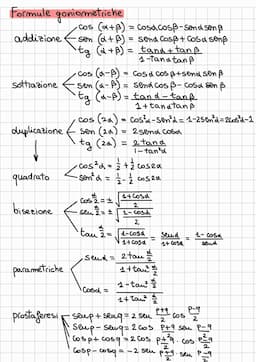 Formule goniometriche
addizione
cos (α+β) = cosα cosβ - senα senβ
sen (α+β) = senα cosβ + cosα senβ
tg (α+β) = (tanα + tanβ)/(1 - tanα tanβ)
sottrazione
cos (α-β) = cosα cosβ + senα senβ
sen (α-β) = senα cosβ - cosα senβ
tg (α-β) = (tanα - tanβ)/(1 + tanα tanβ)
duplicazione
cos (2α) = cos²α - sen²α = 1 - 2sen²α = 2cos²α - 1
sen (2α) = 2senα cosα
tg (2α) = 2tanα/(1 - tan²α)
quadrato
cos²α = 1/2 + 1/2 cos2α
sen²α = 1/2 - 1/2 cos2α
bisezione
cos α/2 = ± √((1+cosα)/2)
sen α/2 = ± √((1-cosα)/2)
tan α/2 = ± √((1-cosα)/(1+cosα)) = senα/(1+cosα) = (1-cosα)/senα
parametriche
senα = (2tan α/2)/(1+tan² α/2)
cosα = (1-tan² α/2)/(1+tan² α/2)
prostaferesi
senp + senq = 2 sen (p+q)/2 cos (p-q)/2
senp - senq = 2 cos (p+q)/2 sen (p-q)/2
cosp + cosq = 2 cos (p+q)/2 cos (p-q)/2
cosp - cosq = -2 sen (p+q)/2 sen (p-q)/2